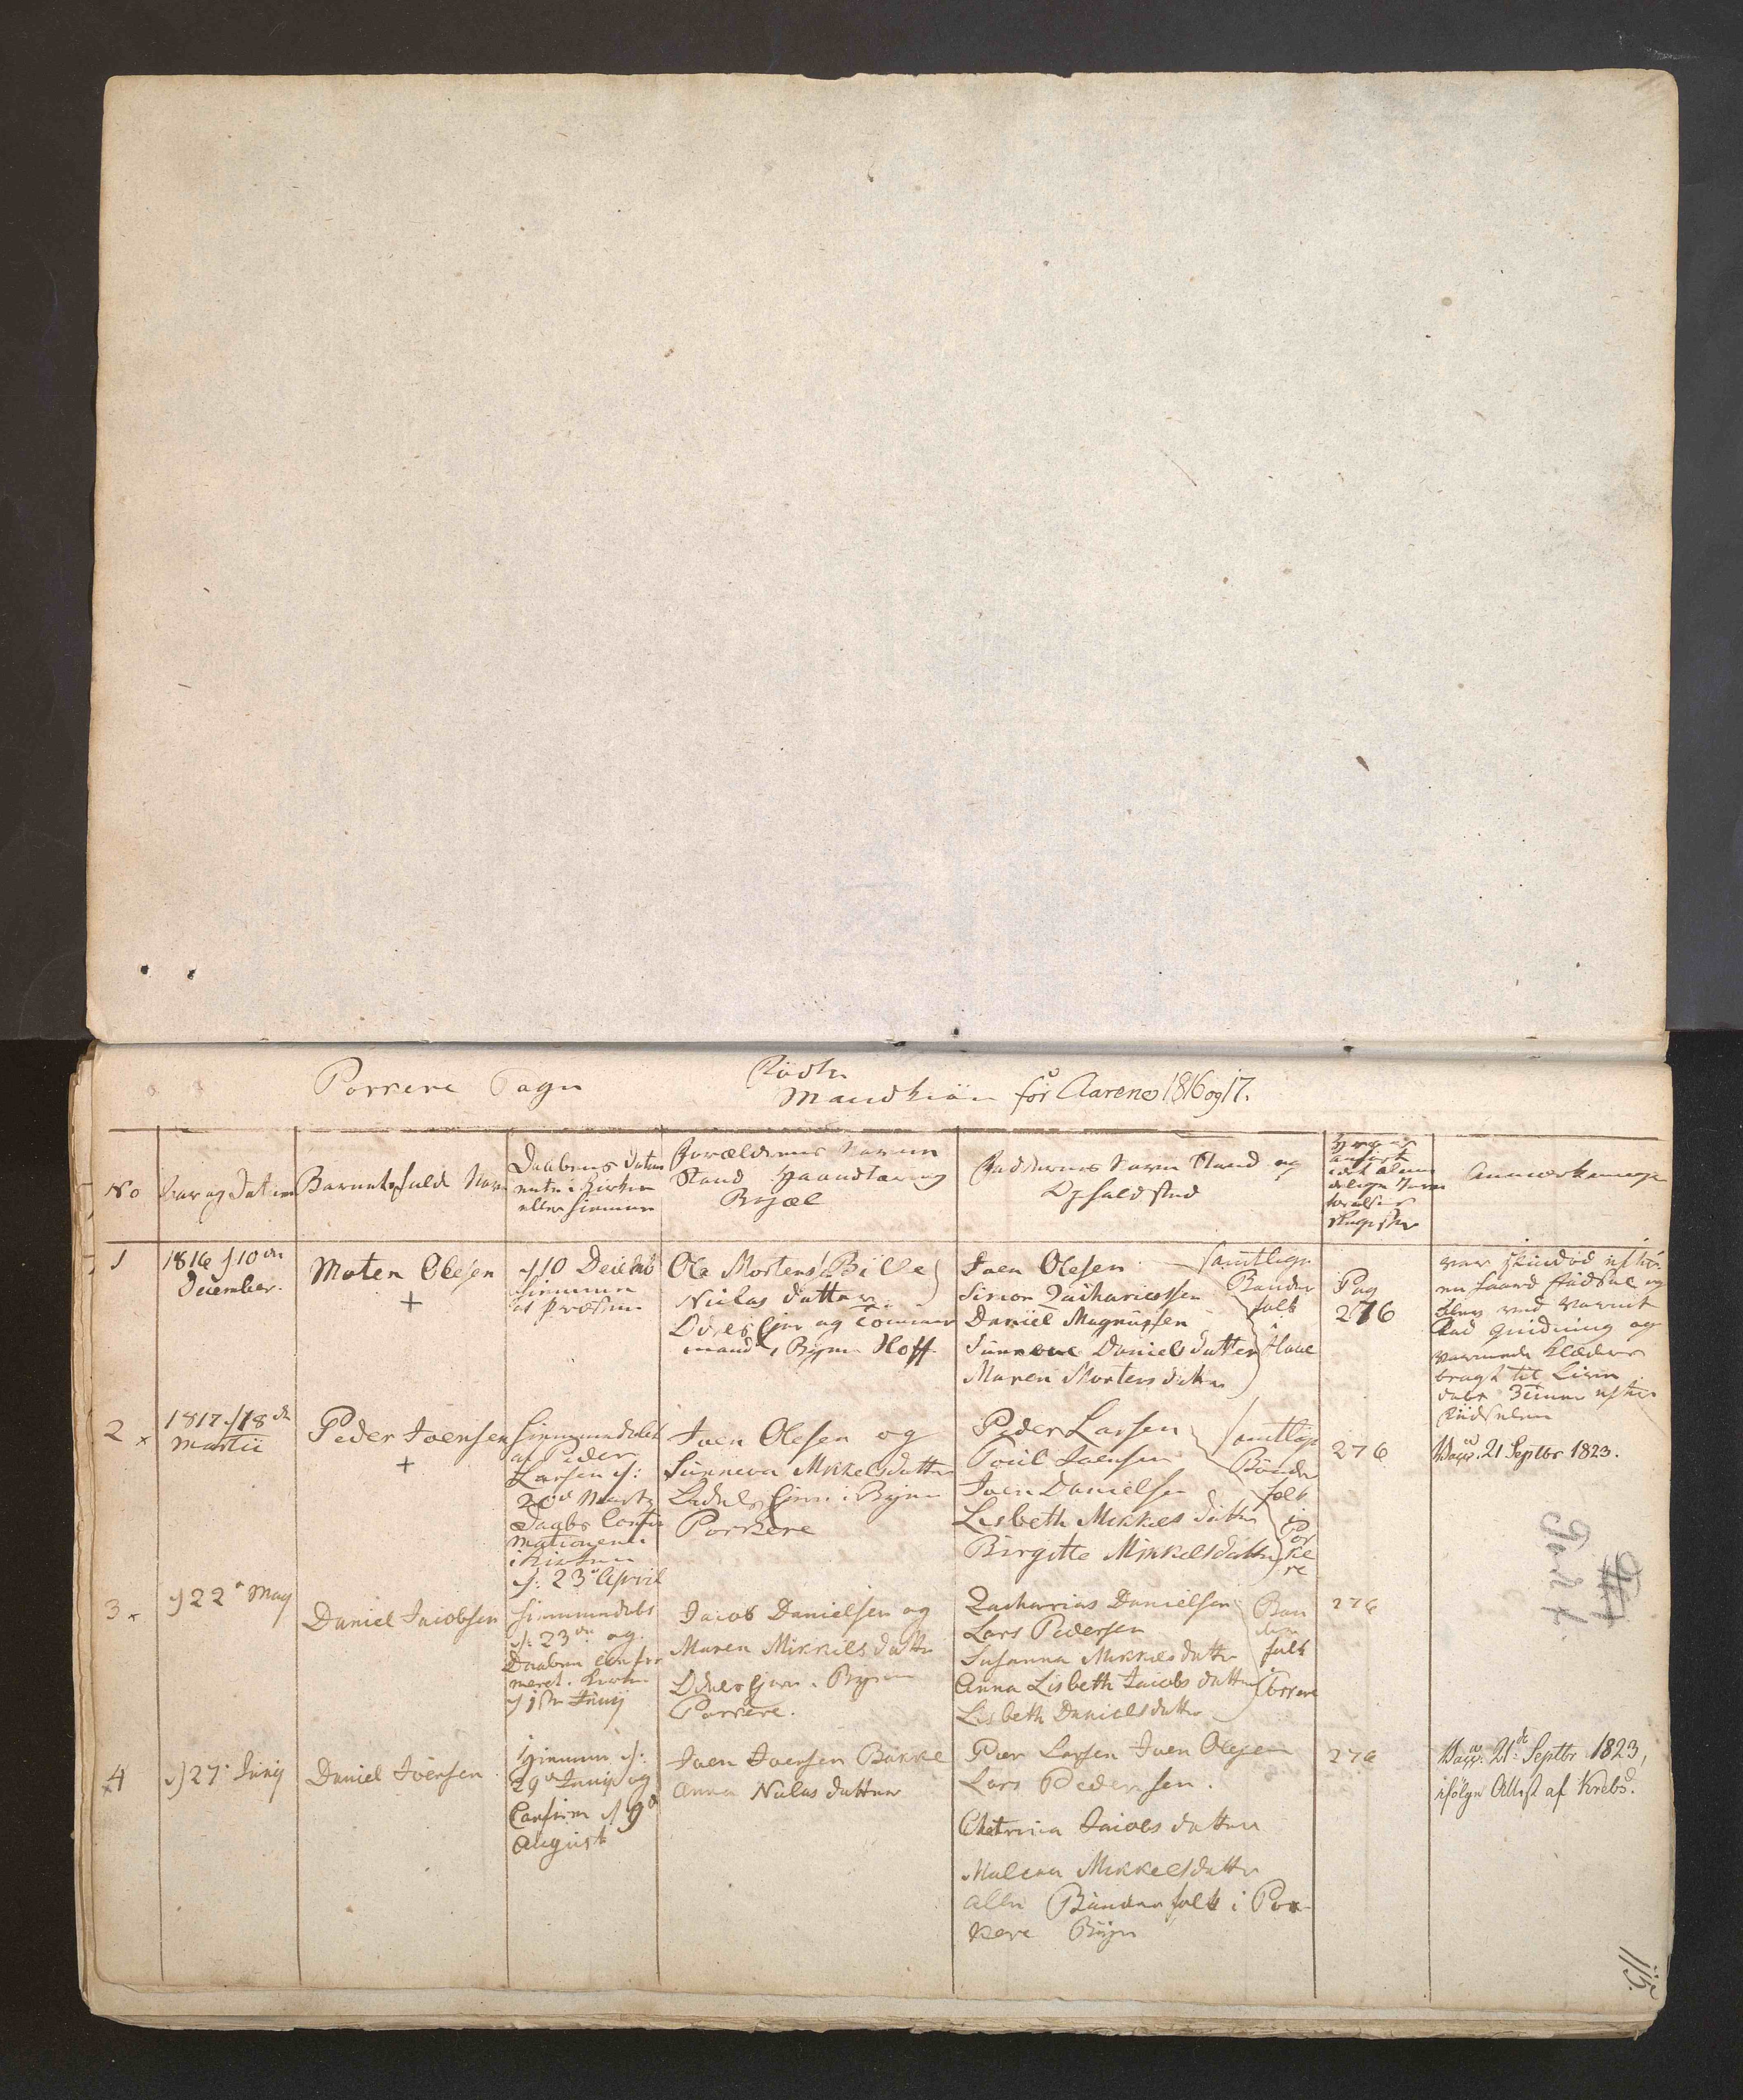 Porkere Sogn
Födte
Mandkiön for Aarene 1816 og 17.
No
Aar og Datum
Barnets fulde Navn
Daabens Datum
enten i Kirken
eller hiemme
Forældrenes Navn
Stand Haandtæring
Boepæl
Faddernes Navn Stand og
Opholdsted
anført
i det almin
delige Jevn
førelses
Register
Anmærkninger
1
1816 d 10de
December.
Moten Olesen
+
d 10 Decemb
hiemme
af Præsten
Ole Mortens. Bille
Niclas datter
Odels Ejer og Tömmer
mand i Bÿen Hoff
Joen Olesen
Simon Zachariassen
Daniel Magnussen
Sunneve Daniels datter
Maren Mortens datter
samtlige
Bonder
folk
i Hove
Pag
276
var skindød efter
en haard Fødsel og
blev ved varmt
Bad gnidning og
varmede Klæder
bragt til Live
døbt 3 timer efter
Födselen
2 x
1817 d 18de
Martii
Peder Joensen
+
hiemmedøbt
af Peder
Larsen d:
20de Martz
Daabs Confir
mationen
i Kirken
d: 23de April
Joen Olesen og
Sunneva Mikkelsdatter
Odels Ejere i Bÿen
Porkere
Peder Larsen
Poül Joensen
Joen Danielsen
Lisbeth Mikkels datter
Birgitte Mikkelsdatter
samtlige
Bönder
folk
i
Por
ke
re
276
Vacc. 21 Septbr 1823.
3 x
d 22de May
Daniel Jacobsen
hiemmedøbt
d: 23de og
Daaben confir
meret i Kirken
d 1ste Junij
Jacob Danielsen og
Maren Mikkels datter
Odels Ejere i Byen
Porkere.
Zacharias Danielsen
Lars Pedersen
Susanna Mikkels datter
Anna Lisbeth Jacobs datter
Lisbeth Daniels datter
Bon
der
folk
i
Porkere
276
x4
d 27de Junij
Daniel Joensen
hiemme d:
29de Junij og
Confirm d 9de
August
Joen Joensen Bakke
Anna Niclas datter
Peer Larsen Joen Olesen
Lars Pedersen.
Chatrina Jacobs datter
Malena Mikkelsdatter
alle Bönder folk i Por
kere Bÿe
276
Vacc. 21de Septbr 1823,
ifölge Attest af Krebs.
115.